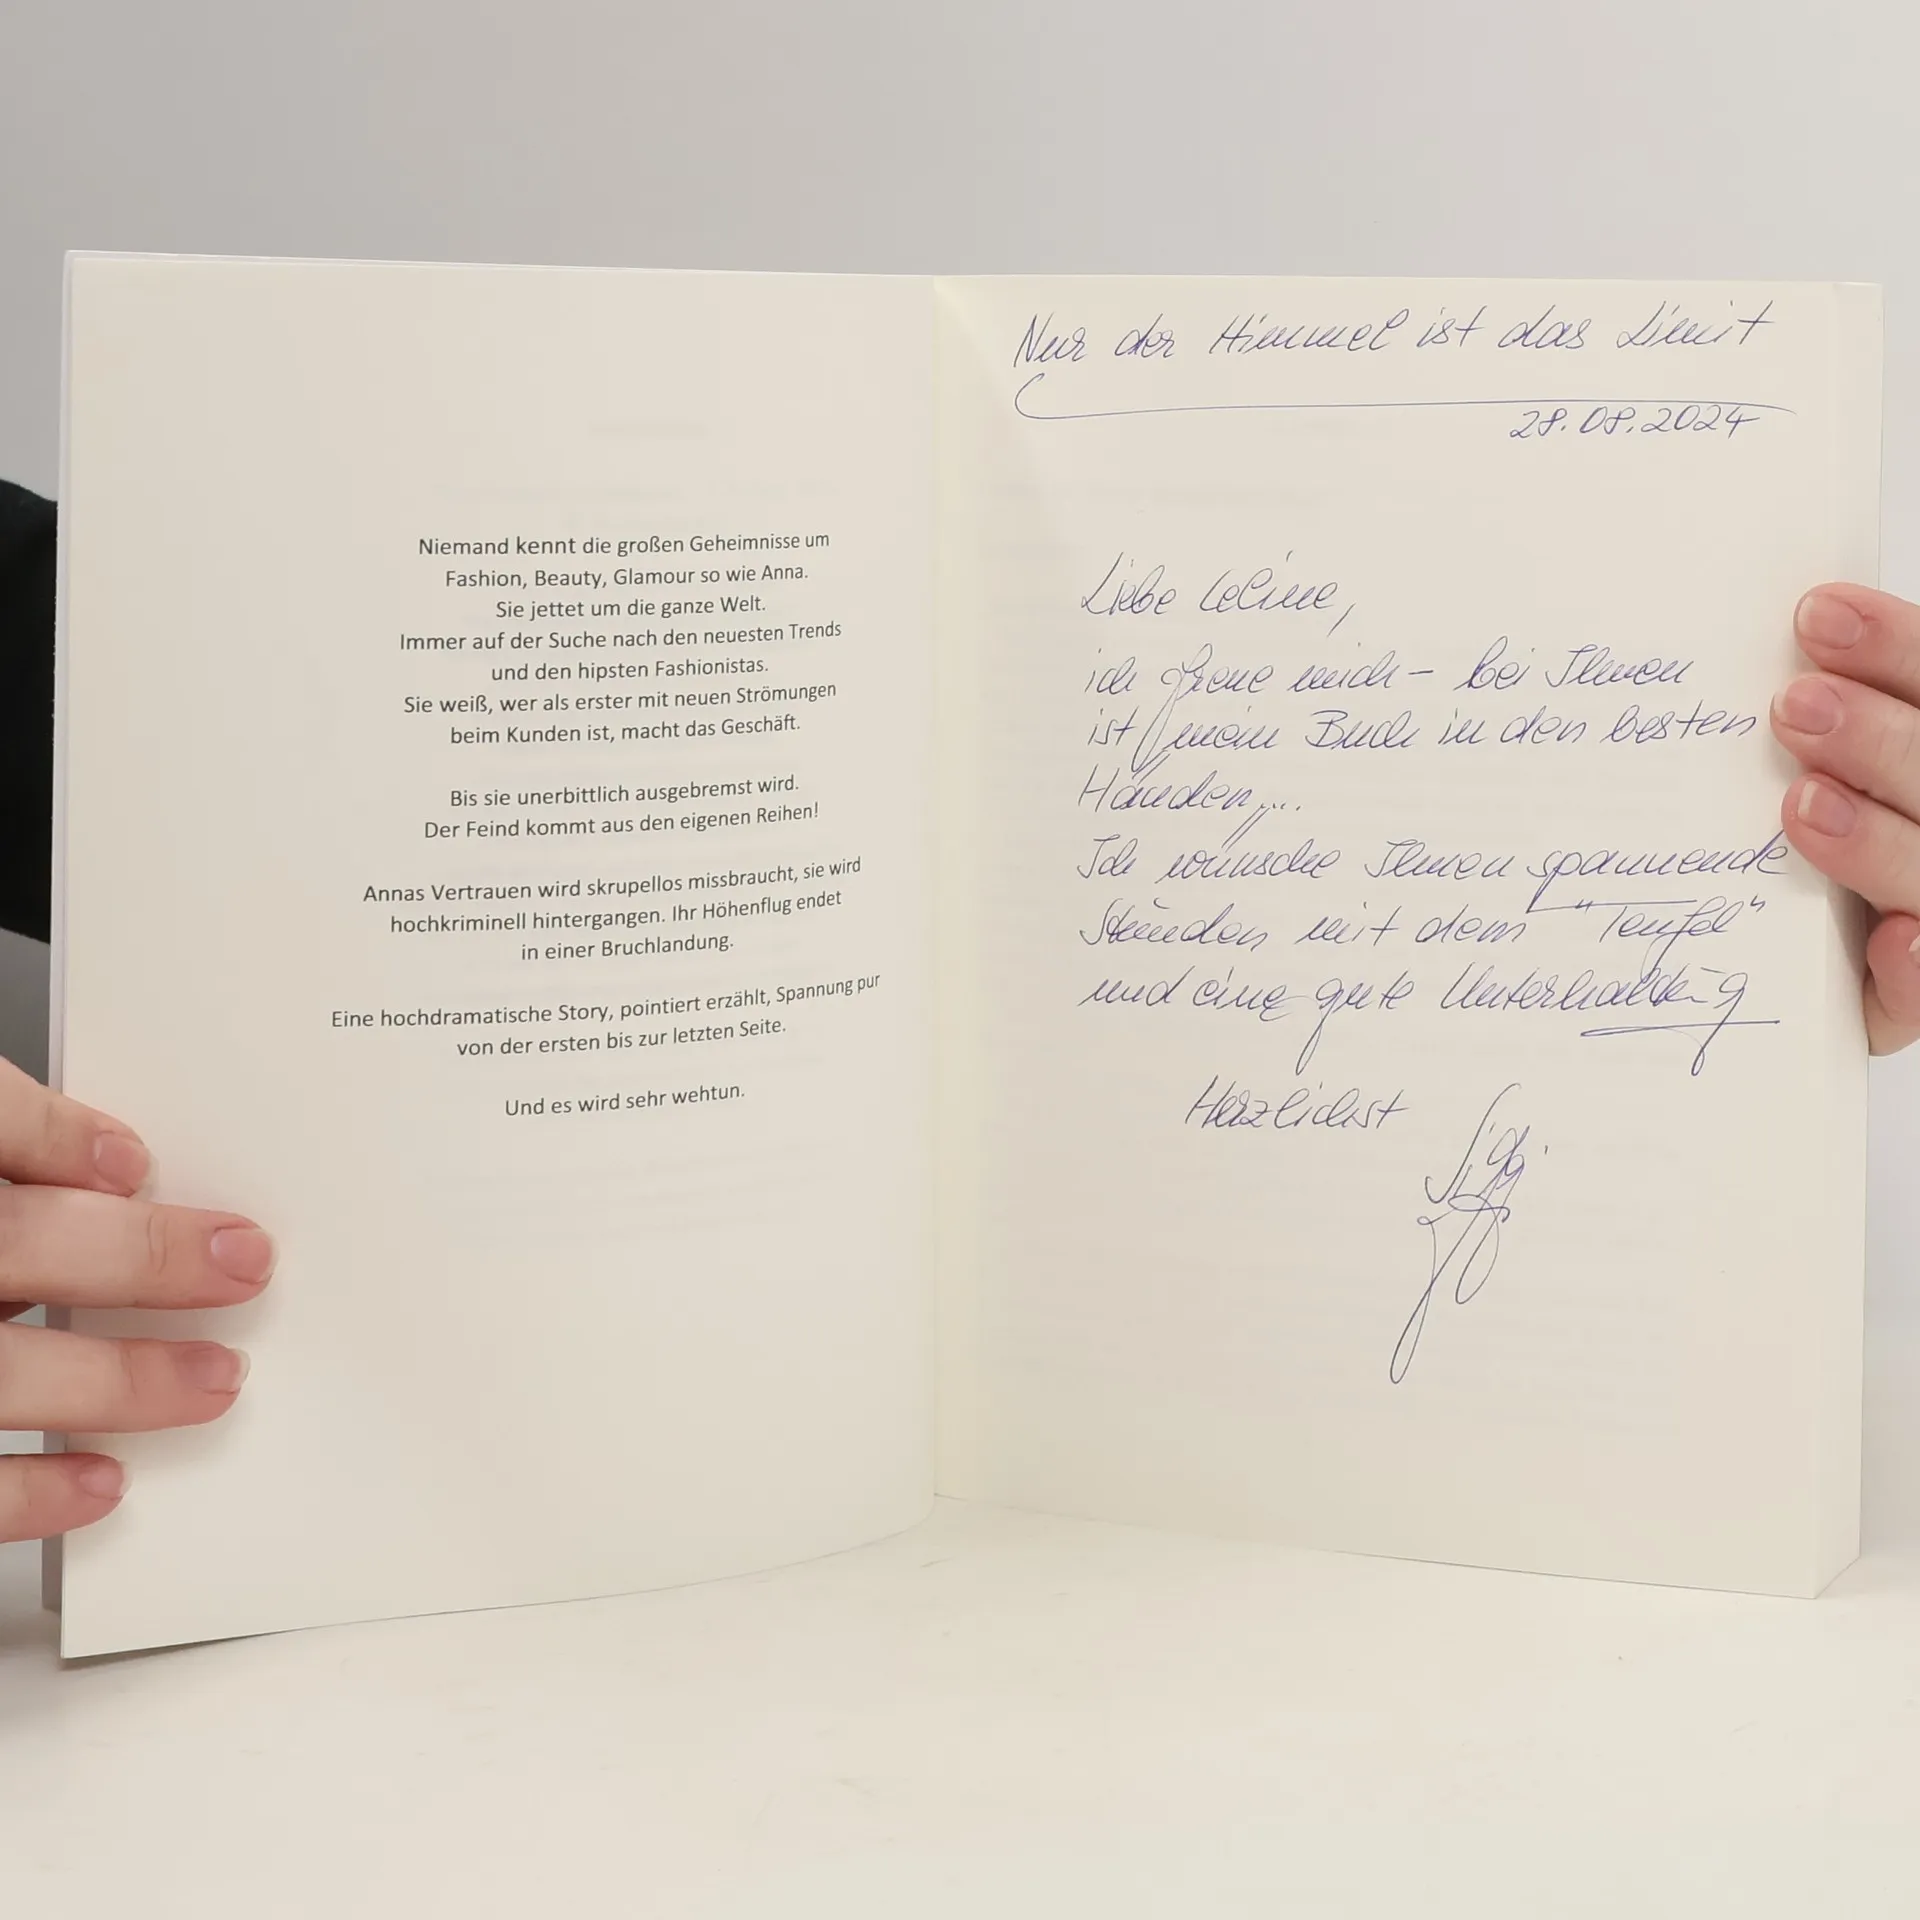 Niemand kennt die großen Geheimnisse um
Fashion, Beauty, Glamour so wie Anna.
Sie jettet um die ganze Welt.
Immer auf der Suche nach den neuesten Trends
und den hipsten Fashionistas.
Sie weiß, wer als erster mit neuen Strömungen
beim Kunden ist, macht das Geschäft.
Bis sie unerbittlich ausgebremst wird.
Der Feind kommt aus den eigenen Reihen!
Annas Vertrauen wird skrupellos missbraucht, sie wird
hochkriminell hintergangen. Ihr Höhenflug endet
in einer Bruchlandung.
Eine hochdramatische Story, pointiert erzählt, Spannung pur
von der ersten bis zur letzten Seite.
Und es wird sehr wehtun.
Nur der Himmel ist das Limit
28.08.2024
Liebe Celine,
ich freue mich – bei Ihnen
ist mein Buch in den besten
Händen,...
Ich wünsche Ihnen spannende
Stunden mit dem "Teufel"
und eine gute Unterhaltung
Herzlichst